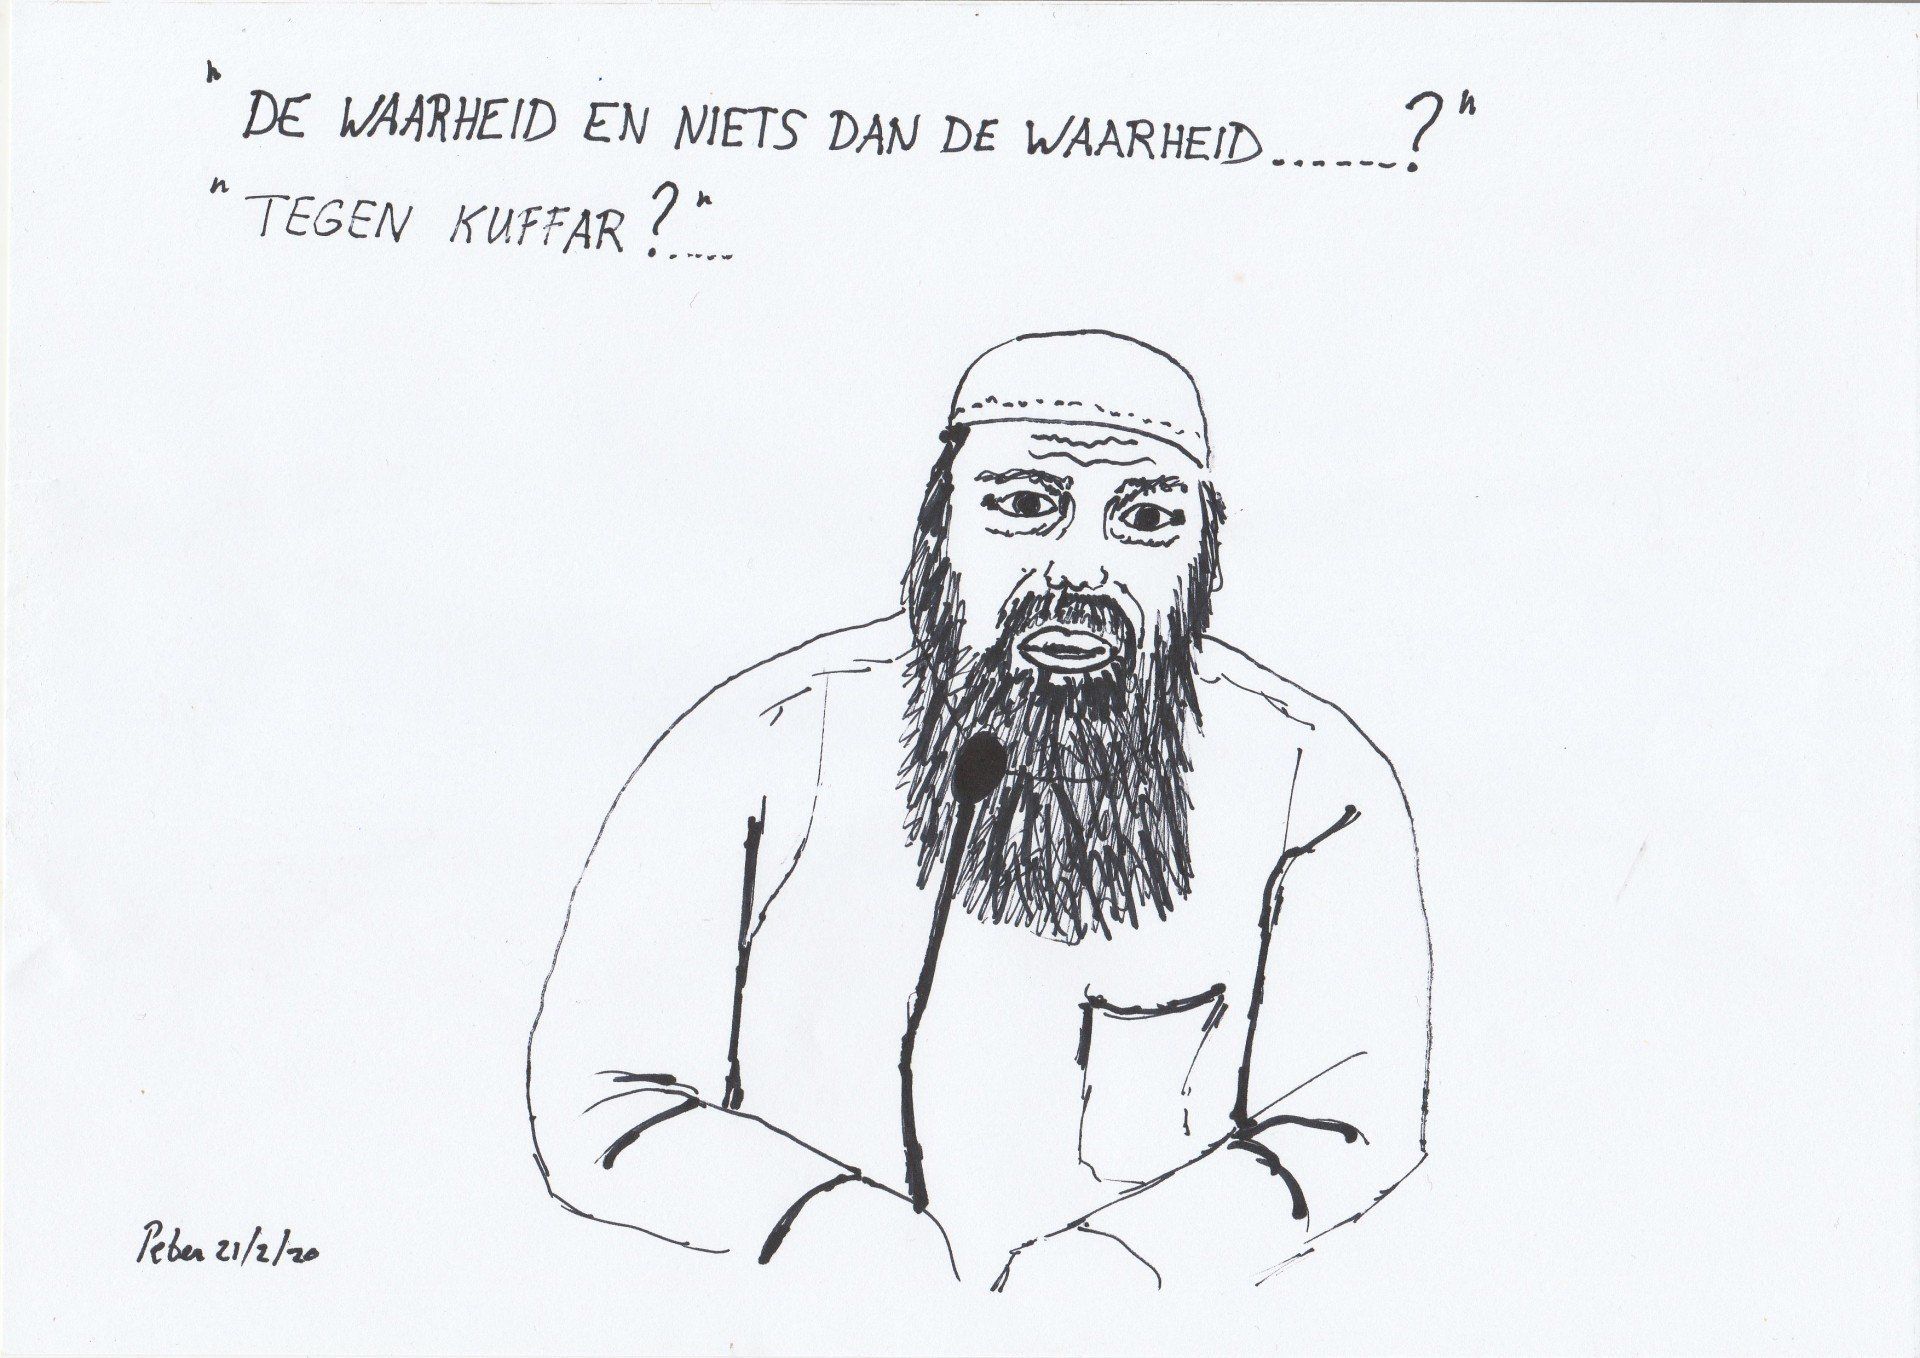 "DE WAARHEID EN NIETS DAN DE WAARHEID.......?"
"TEGEN KUFFAR?".....
Peter 21/2/20